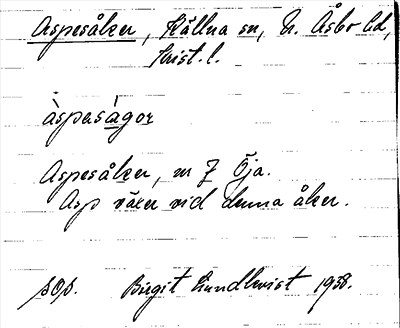 Aspesåker, Källna sn, N. Åsbo hd,
Krist. l.
àspaságor
Aspesåker, nr 7 Öja.
Asp växer vid denna åker.
sop. Birgit Lundkvist 1938.